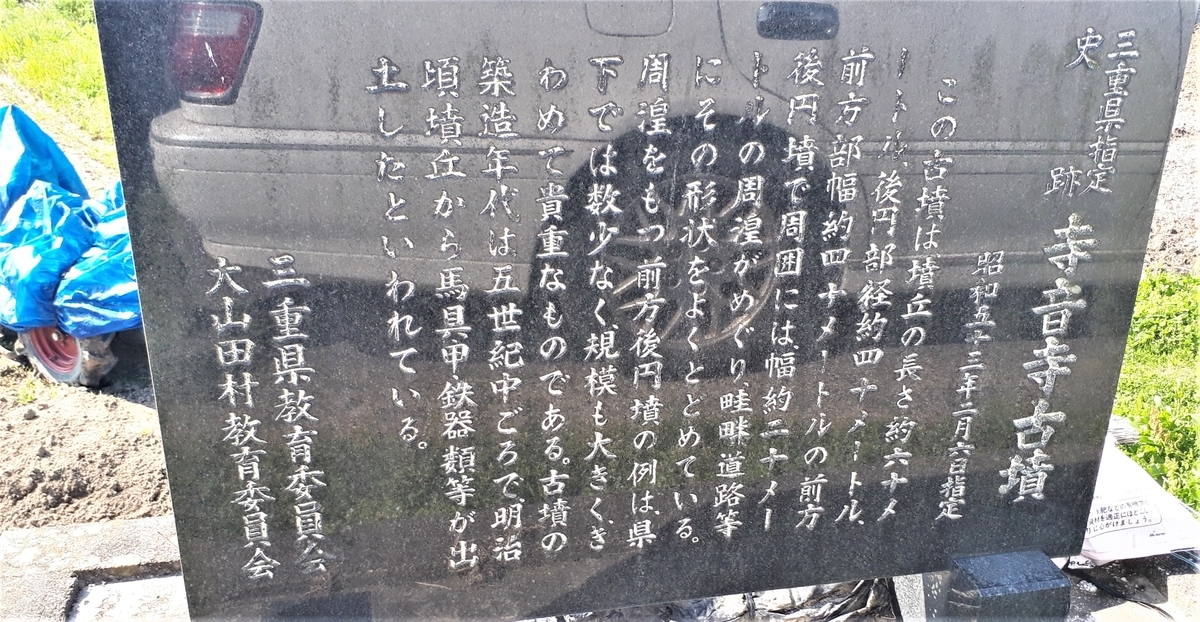 三重県指定
史跡
寺音寺古墳
昭和五十三年二月六日指定
この古墳は、墳丘の長さ約六十メ
ートル、後円部径約四十メートル、
前方部幅約四十メートルの前方
後円墳で周囲には、幅約二十メー
トルの周湟がめぐり、畦畔、道路等
にその形状をよくとどめている。
周湟をもつ前方後円墳の例は、県
下では数少なく、規模も大きく、き
わめて貴重なものである。古墳の
築造年代は五世紀中ごろで明治
頃、墳丘から馬具、甲、鉄器類等が出
土したといわれている。
三重県教育委員会
大山田村教育委員会